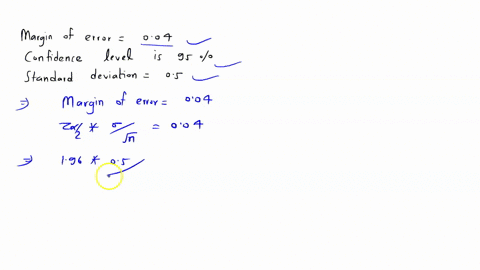 Margin of error = 0.04
Confidence level is 95 %
Standard deviation = 0.5
⇒ Margin of error = 0.04
Zα/2 * σ/√n = 0.04
⇒ 1.96 * 0.5